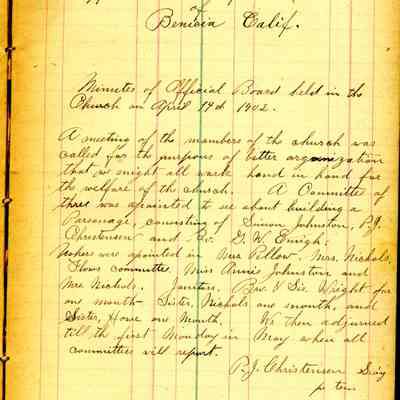 Benicia Calif.
Minutes of Official Board held in the
Church on April 14th 1902.
A meeting of the members of the church was
called for the purpous of better organization
that we might all work hand in hand for
the welfare of the church. A Committee of
three was apointed to see about building a
Parsonage, consisting of Simon Johnston, P.J.
Christensen and Bro. G. W. Enigh.
Ushers were apointed in Mrs Pillow, Mrs. Nichols.
Flows committee. Miss Annie Johnston and
Mrs Nichols. Janitors. Bro. & Sis. Wright for
one month Sister, Nichols one month, and
Sister, Howe one Month. We then adjurned
till the first Monday in May when all
committies will report.
P. J. Christensen Secy
pro tem